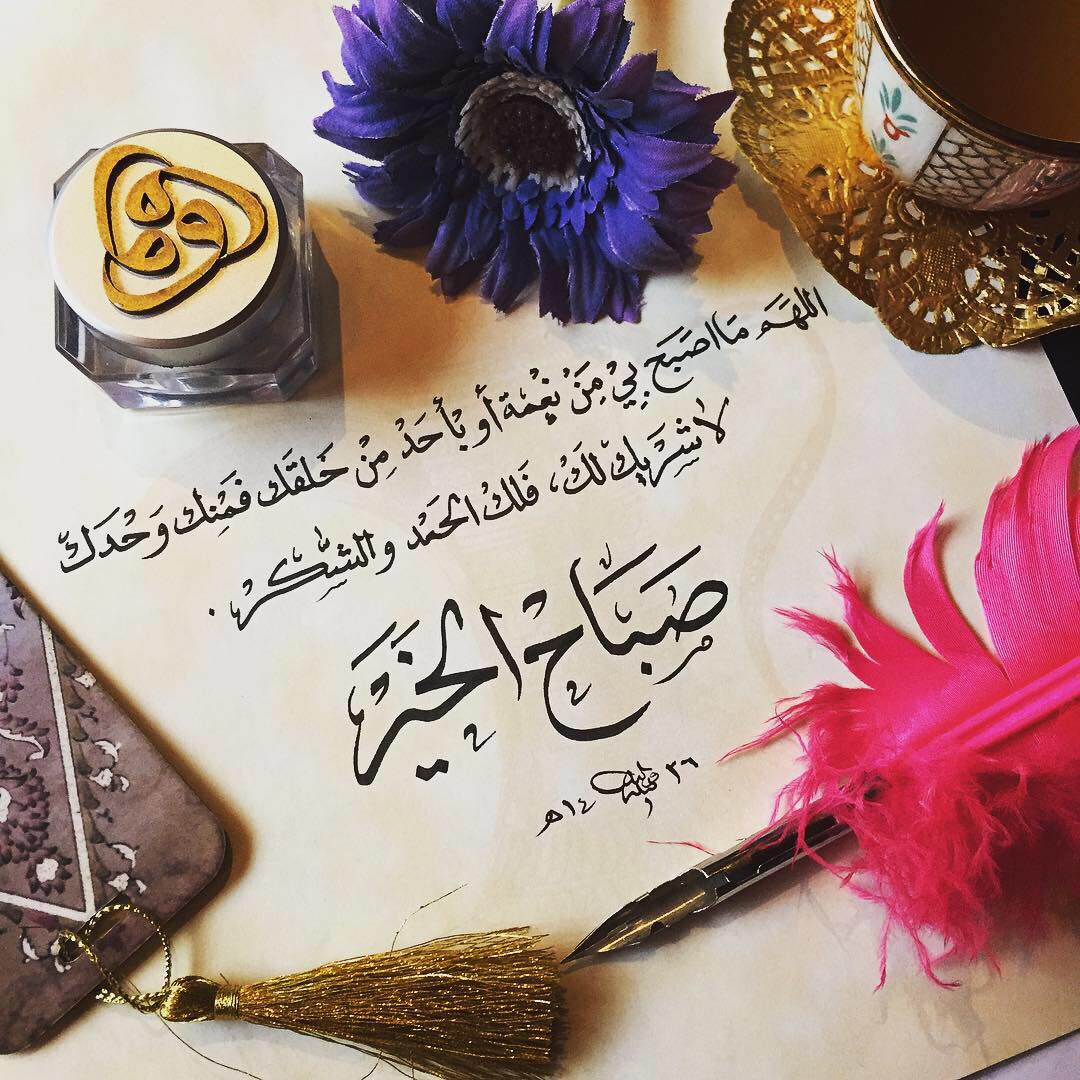 اللهَم مَا اصَبَح بِيْ مِنَ نِعْمْة أو بْأحَدْ مِنْ خَلقَك فَمْنِك وَحْدَكْ
لاشَرَيك لكَ، فَلكْ الحَمْد والشِّكر.
صَبَاح الخَيَر
١٤٣٦هـ